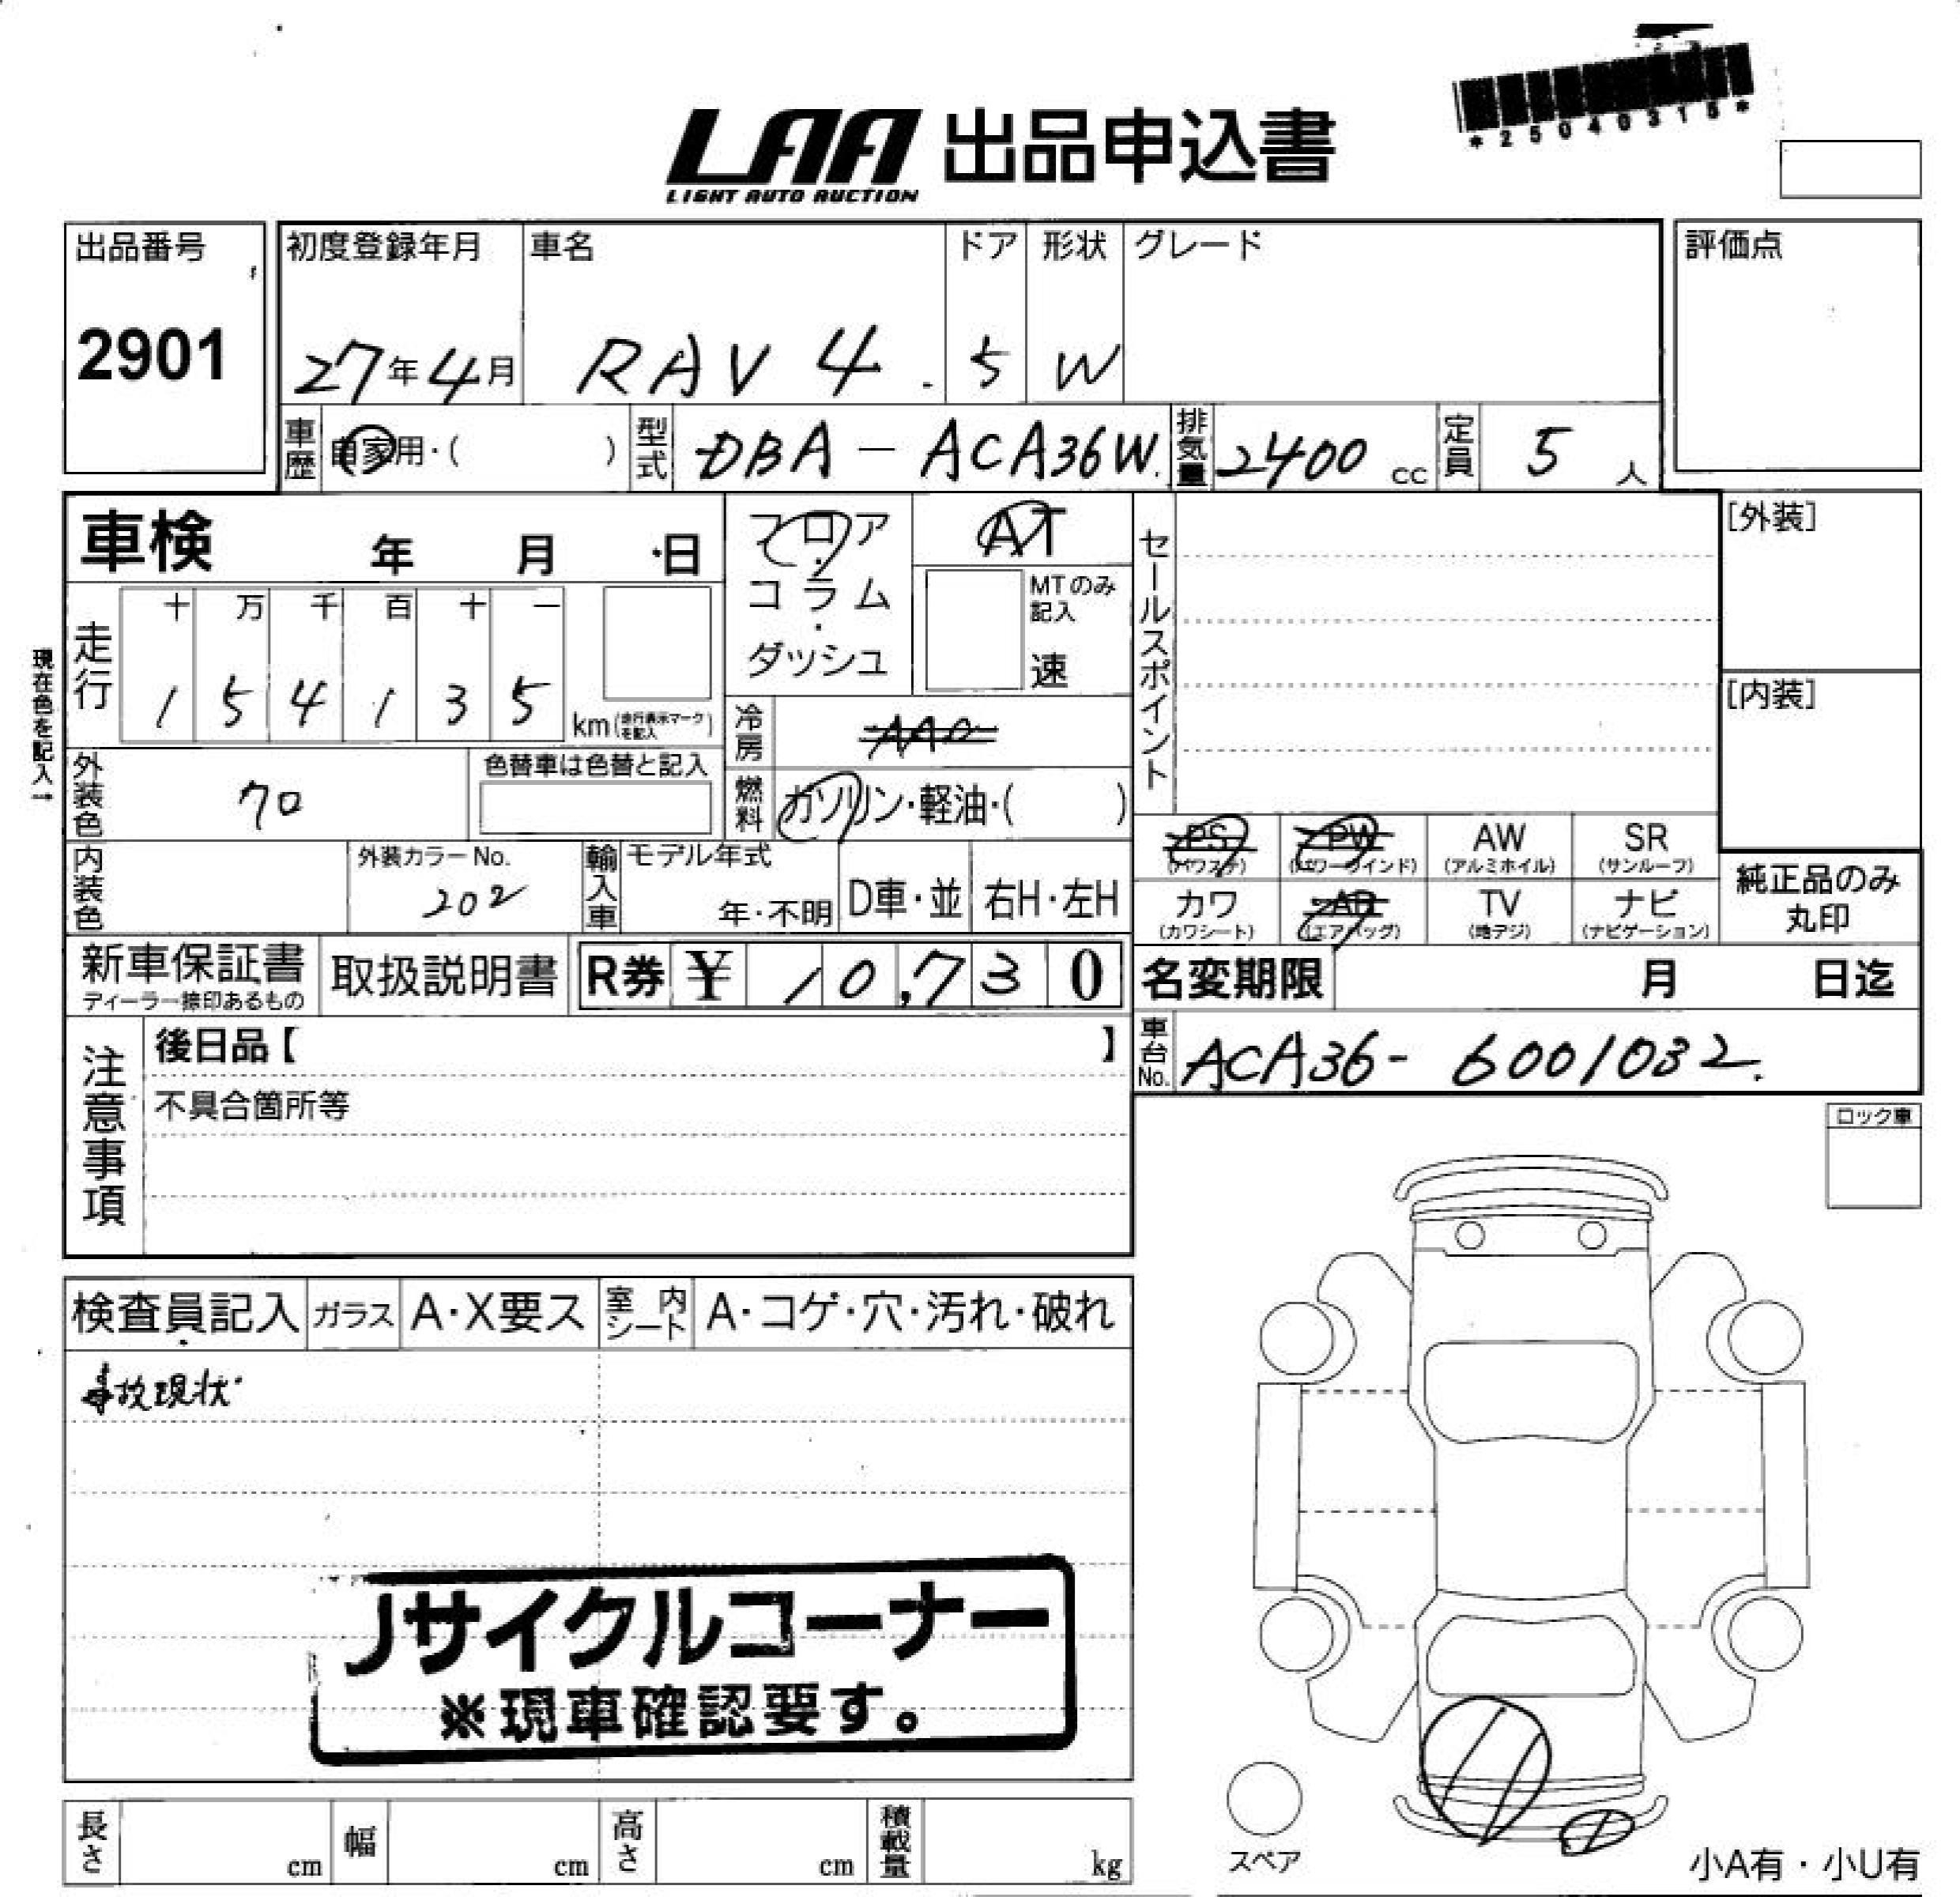 *25040315*
LAA 出品申込書
LIGHT AUTO AUCTION
出品番号 初度登録年月 車名 ドア 形状 グレード 評価点
2901 27年4月 RAV4 5 W
車歴 自家用・( ) 型式 DBA-ACA36W 排気量 2400 cc 定員 5 人
車検 年 月 日 フロア・コラム・ダッシュ AT セールスポイント [外装]
MTのみ記入 速
現在色を記入→
走行 十 万 千 百 十 一
1 5 4 1 3 5 km (走行表示マークを記入) [内装]
冷房 AAC
外装色 クロ 色替車は色替と記入 燃料 ガソリン・軽油・( )
PS (パワステ) PW (パワーウインド) AW (アルミホイル) SR (サンルーフ) 純正品のみ丸印
内装色 外装カラーNo. 202 輸入車 モデル年式 年・不明 D車・並 右H・左H
カワ (カワシート) AB (エアバッグ) TV (地デジ) ナビ (ナビゲーション)
新車保証書 ディーラー捺印あるもの 取扱説明書 R券 ¥ 10,730 名変期限 月 日迄
注意事項 後日品【 】 車台No. ACA36-6001032
不具合箇所等 ロック車
検査員記入 ガラス A・X要ス 室内シート A・コゲ・穴・汚れ・破れ
事故現状
リサイクルコーナー
※現車確認要す。
長さ cm 幅 cm 高さ cm 積載量 kg スペア 小A有・小U有